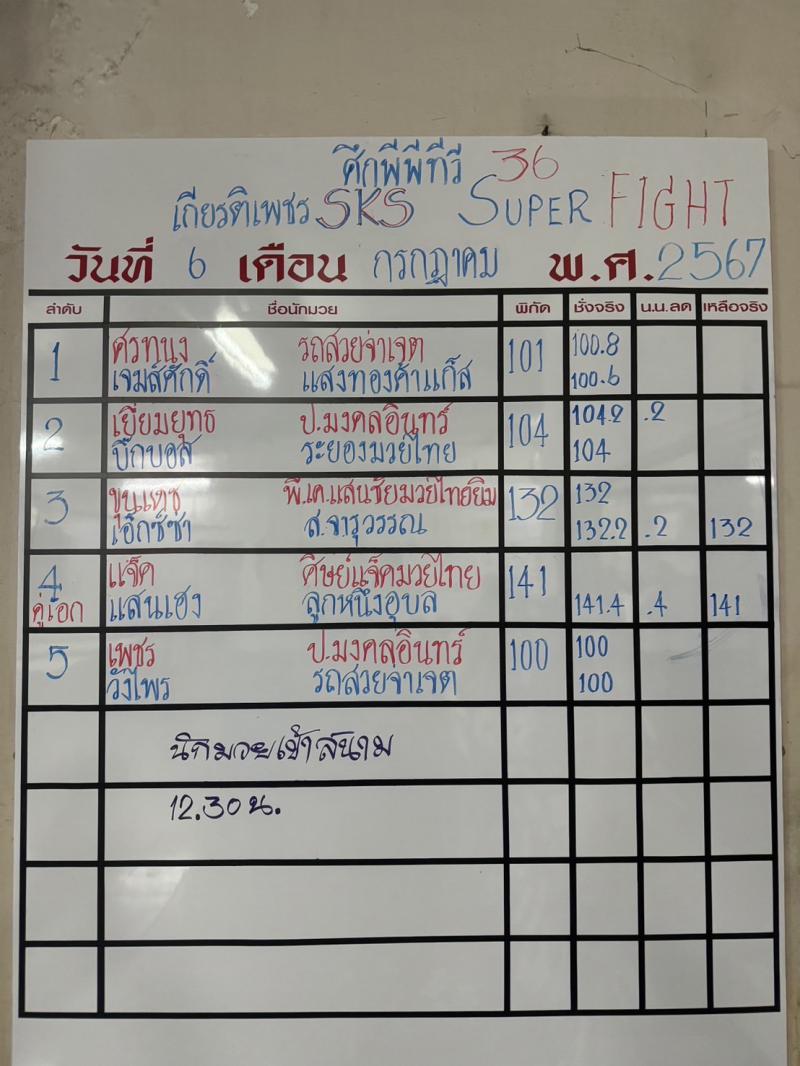 ศึกพีพีทีวี 36
เกียรติเพชร SKS SUPER FIGHT
วันที่ 6 เดือน กรกฎาคม พ.ศ. 2567
ลำดับ ชื่อนักมวย พิกัด ชั่งจริง น.น.ลด เหลือจริง
1 ศรทนง รถสวยจ่าเจต 101 100.8
เจมส์ศักดิ์ แสงทองค้าแก็ส 100.6
2 เยี่ยมยุทธ ป.มงคลอินทร์ 104 104.2 .2
บิ๊กบอส ระยองมวยไทย 104
3 ขุนเดช พี.เค.แสนชัยมวยไทยยิม 132 132
เอ็กซ์ซ่า ส.จารุวรรณ 132.2 .2 132
4 แจ็ค ศิษย์แจ็คมวยไทย 141
คู่เอก แสนเฮง ลูกหนึ่งอุบล 141.4 .4 141
5 เพชร ป.มงคลอินทร์ 100 100
วังไพร รถสวยจ่าเจต 100
นักมวยเข้าสนาม
12.30 น.